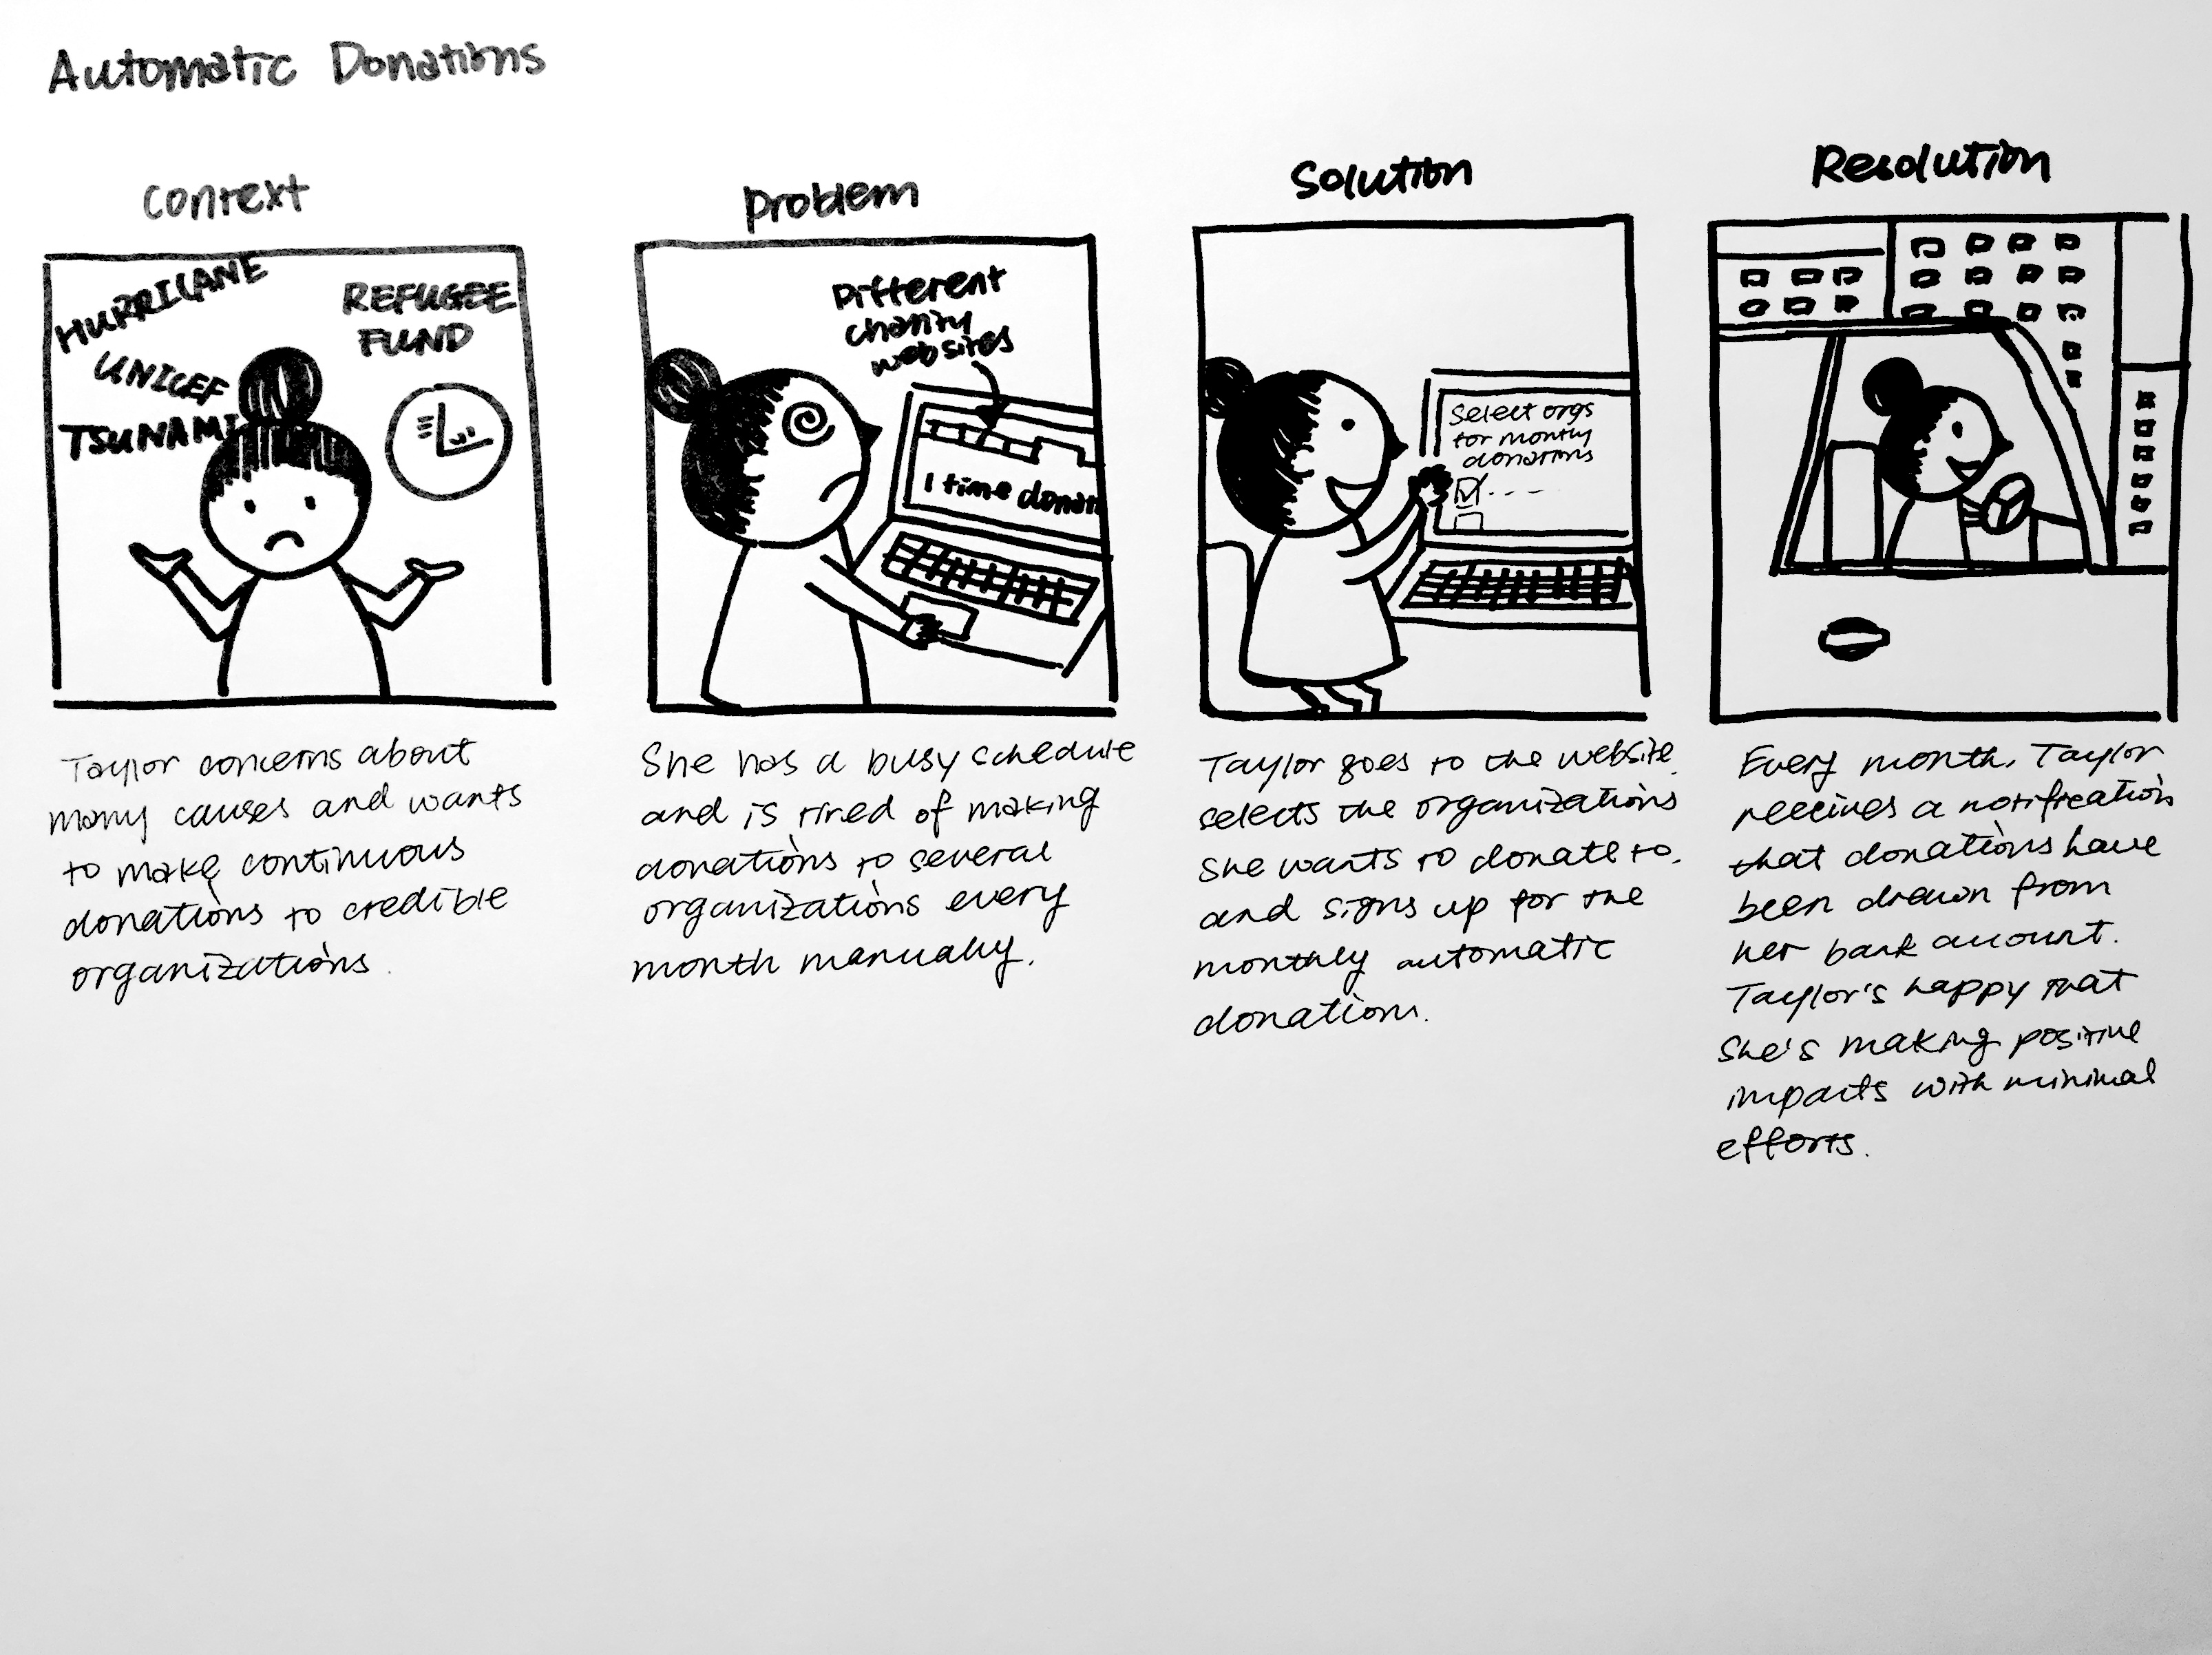 Automatic Donations
Context
HURRICANE
REFUGEE
FUND
UNICEF
TSUNAMI
Taylor concerns about
many causes and wants
to make continuous
donations to credible
organizations.
Problem
Different
charity
websites
1 time donat
She has a busy schedule
and is tired of making
donations to several
organizations every
month manually.
Solution
Select orgs
for monthly
donations
Taylor goes to the website,
selects the organizations
she wants to donate to,
and signs up for the
monthly automatic
donations.
Resolution
Every month, Taylor
receives a notification
that donations have
been drawn from
her bank account.
Taylor's happy that
She's making positive
impacts with minimal
efforts.